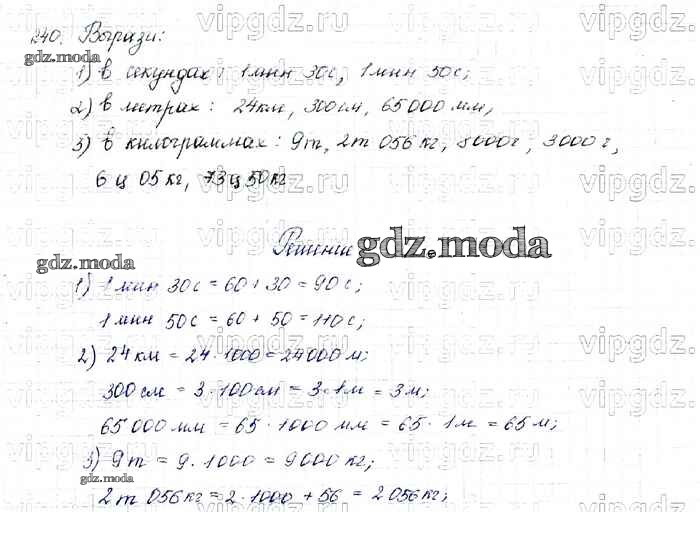 240. Вырази:
gdz.moda
1) в секундах: 1 мин 30с, 1 мин 50с;
2) в метрах: 24км, 300см, 65000 мм;
3) в килограммах: 9т, 2т 056 кг, 8000г, 3000 г,
6 ц 05 кг, 73ц 50 кг
Решение gdz.moda
gdz.moda
1) 1 мин 30с = 60 + 30 = 90 с;
1 мин 50с = 60 + 50 = 110 с;
2) 24 км = 24 · 1000 = 24000 м;
300 см = 3 · 100 см = 3 · 1 м = 3м;
65000 мм = 65 · 1000 мм = 65 · 1м = 65 м;
3) 9т = 9 · 1000 = 9000 кг;
2 т 056 кг = 2 · 1000 + 56 = 2056 кг;
gdz.moda
vipgdz.ru